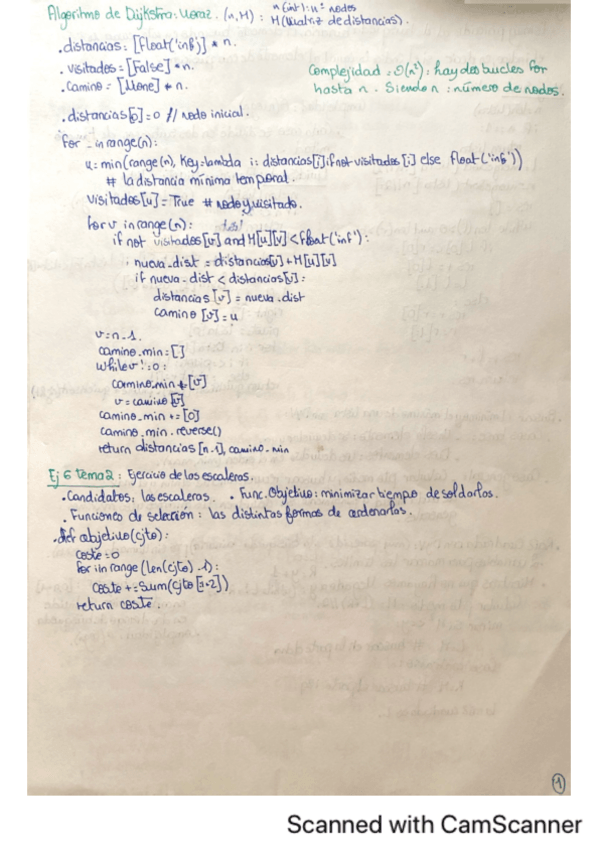 Algoritmo de Dijkstra: Voraz. (n,M): n (int): nº nodos
M (Matriz de distancias).
. distancias = [Float('inf')] * n.
. visitados = [False] * n.
. Camino = [None] * n.
Complejidad = O(n²): hay dos bucles for
hasta n. Siendo n: número de nodos.
. distancias[0] = 0 // nodo inicial.
for _ in range(n):
u = min(range(n), Key=lambda i: distancias[i] if not visitados[i] else float('inf'))
# la distancia mínima temporal.
visitados[u] = True # nodo ya visitado.
for v in range(n):
if not visitados[v] and M[u][v] < Float('inf'):
nueva_dist = distancias[u] + M[u][v]
if nueva_dist < distancias[v]:
distancias[v] = nueva_dist
camino[v] = u
v = n-1.
camino_min = []
while v != 0:
camino_min += [v]
v = camino[v]
camino_min += [0]
camino_min.reverse()
return distancias[n-1], camino_min
Ej 6 tema 2: Ejercicio de las escaleras.
. Candidatos: las escaleras. . Func. Objetivo: minimizar tiempo de soldarlas.
. Funciones de selección: las distintas formas de ordenarlas.
. def objetivo(cjto):
coste = 0
for i in range(len(cjto)-1):
coste += Sum(cjto[:i+2])
return coste.
1
Scanned with CamScanner